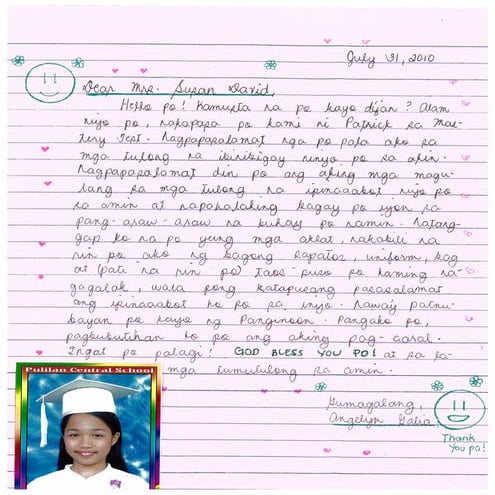 July 31, 2010
Dear Mrs. Susan David,
Hello po! Kamusta na po kayo dijan? Alam
niyo po, nakapasa po kami ni Patrick sa Mas-
tery Test. Nagpapasalamat nga po pala ako sa
mga tulong na ibinibigay ninyo po sa akin.
Nagpapasalamat din po ang aking mga magu-
lang sa mga tulong na ipinaaabot niyo po
sa amin at napakalaking bagay po iyon sa
pang-araw-araw na buhay po namin. Natang-
gap ko na po yung mga aklat, nakabili na
rin po ako ng bagong sapatos, uniform, bag
at (pati na rin po) Taos-puso po kaming na-
gagalak, wala pong katapusang pasasalamat
ang ipinaaabot ko po sa inyo. Naway patnu-
bayan po kayo ng Panginoon. Pangako po,
pagbubutihan ko po ang aking pag-aaral.
Ingat po palagi! GOD BLESS YOU PO! at sa la-
mga tumutulong sa amin.
Gumagalang,
Angelyn Galia
Thank
you po!
Pulilan Central School